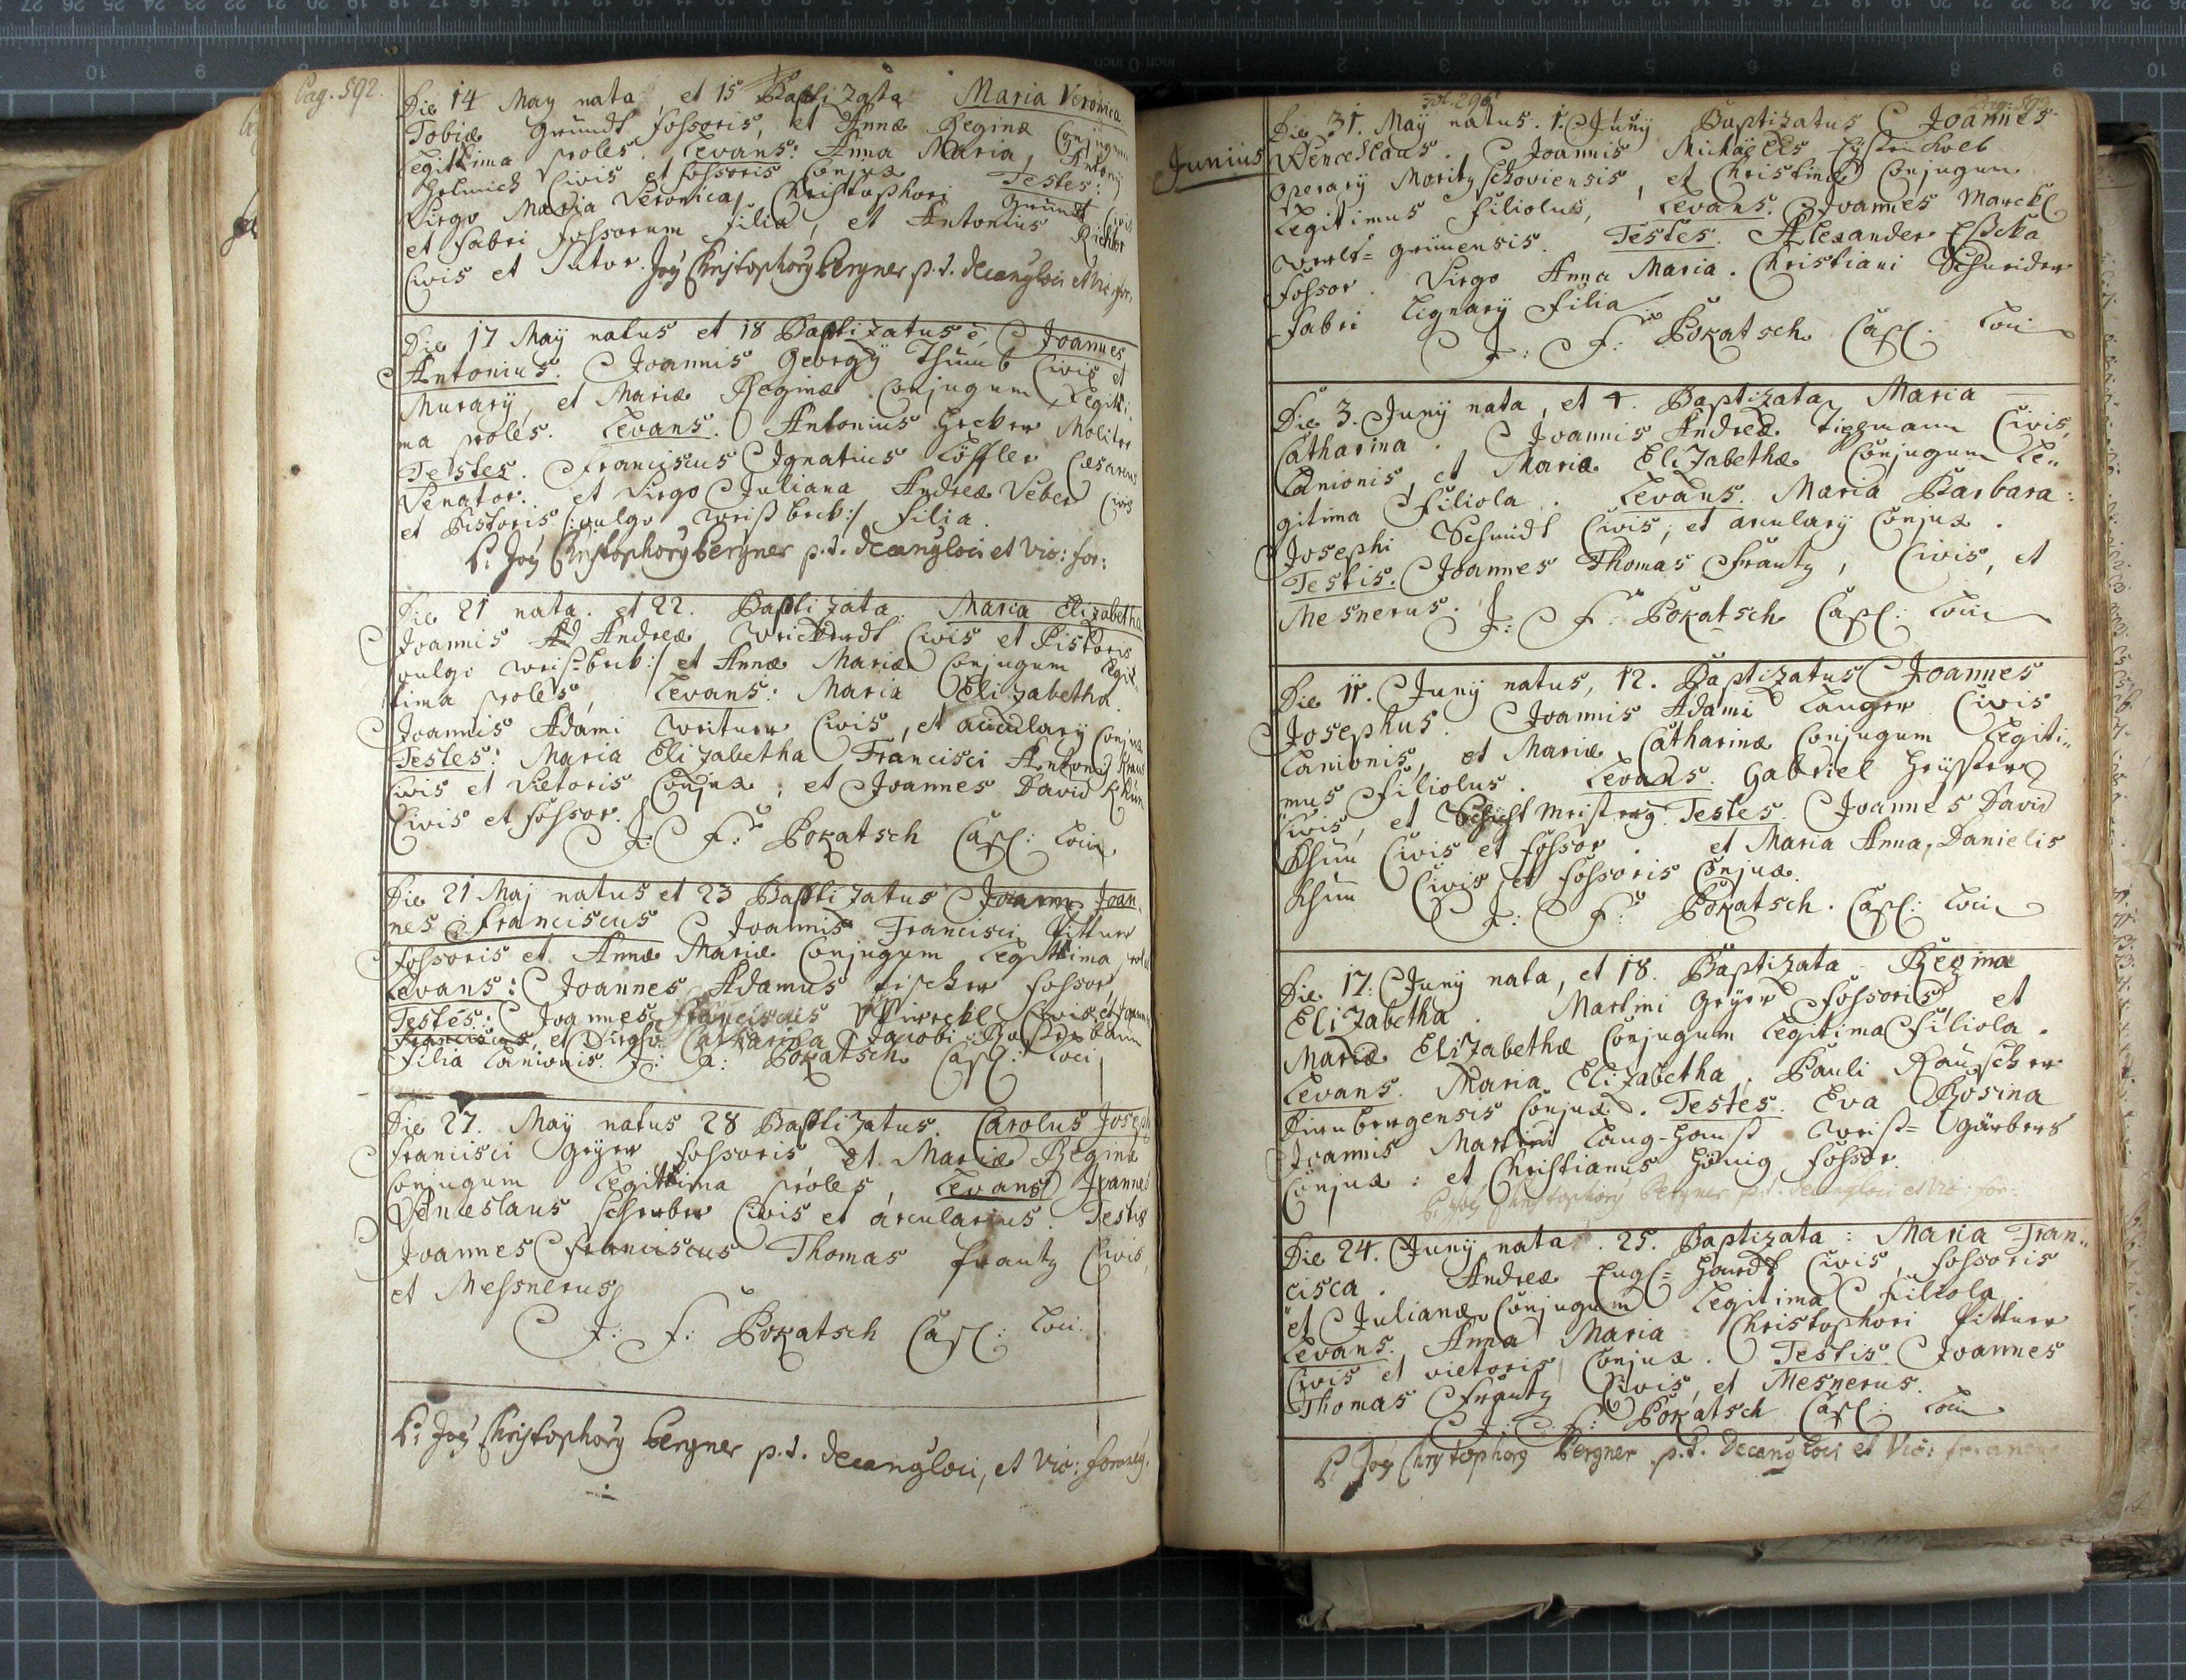 Pag. 592.
Die 14 May nata, et 15 Baptizata Maria Veronica
Tobiæ Grundt fossoris, et Annæ Reginæ Conjugum
Legittima proles. Levans: Anna Maria, Antony
Civis et fossoris Conjux Testes:
Virgo Maria Veronica, Christophori Grundt Civis
et fabri fossorum filia, et Antonius Richter
Civis et Sutor. Joȩ Christophorȩ Bergner p.t. decanȩ loci et Vic: for:
Die 17 Maÿ natus et 18 Baptizatus ē Joannes
Antonius. Joannis Georgÿ Thumb Civis et
Murarÿ, et Mariæ Reginæ Conjugum Legitti
ma proles. Levans. Antonius Hecker Molitor
Testes. Franciscus Ignatius Löffler Cæsareus
Venator. et Virgo Juliana Andreæ Veber Civis
et Pistoris /:vulgo Weißbeck:/ filia.
P. Joȩ Christophorȩ Bergner p.t. decanȩ loci et Vic: for:
Die 21 nata. et 22. Baptizata. Maria Elizabetha
Joannis Ad Andreæ Civis et Pistoris
vulgo Weißbeck:/ et Annæ Mariæ Conjugum Legit-
tima proles, Levans: Maria Elizabetha.
Joannis Adami Civis, et arculary Conjux
Testes: Maria Elizabetha Francisci Antony
Civis et Vietoris Conjux; et Joannes David Khün
Civis et fossor.
J: F: Pokatsch Capl: Loci
Die 21 Maj natus et 23 Baptizatus Joannes Joan-
nes Franciscus Joannis Francisci Pittner
fossoris et Annæ Mariæ Conjugum Legittima proles
Levans: Joannes Adamus Fischer fossor
Testes: Joannes Franciscus Civis et
Franciscus, et Virgo Catharina Jacobi
filia Lanionis. J: F: Pokatsch Capl: Loci
Die 27. Maÿ natus 28 Baptizatus. Carolus Joseph
Francisci Geÿer fossoris et Mariæ Reginæ
Conjugum Legittima proles, Levans Joannes
Venceslaus Scherber Civis et arcularius. Testis
Joannes Franciscus Thomas Frantz Civis,
et Messnerus
J: F: Pokatsch Capl: Loci.
P. Joȩ Christophorȩ Bergner p.t. decanȩ loci, et Vic: foraneȩ.
Fol. 296
Junius
Die 31. Maÿ natus. 1. Junÿ Baptizatus Joannes
Wenceslaus. Joannis Michaëlis
Operarÿ Moritzschoviensis, et Christinæ Conjugum
Legitimus filiolus, Levans. Joannes Marckl
grünensis. Testes. Alexander
fossor. Virgo Anna Maria. Christiani Schneider
fabri Lignarÿ filia
J: F: Pokatsch Capl: Loci
Die 3. Junÿ nata, et 4. Baptizata Maria
Catharina. Joannis Andreæ Civis,
Lanionis, et Mariæ Elizabethæ Conjugum Le-
gitima filiola. Levans. Maria Barbara:
Josephi Schmidt Civis, et arculary Conjux.
Testis. Joannes Thomas Frantz, Civis, et
Mesnerus. J: F: Pokatsch Capl: Loci
Die 11. Junÿ natus, 12. Baptizatus Joannes
Josephus. Joannis Adami Langer Civis
Lanionis, et Mariæ Catharinæ Conjugum Legiti-
mus filiolus. Levans. Gabriel
Civis, et Schichtmeister. Testes. Joannes David
Khün Civis et fossor. et Maria Anna, Danielis
Khün Civis, et fossoris Conjux.
J: F: Pokatsch. Capl: Loci
Die 17. Junÿ nata, et 18. Baptizata Regina
Elizabetha. Martini Geÿer fossoris, et
Mariæ Elizabethæ Conjugum Legitima filiola.
Levans. Maria Elizabetha, Pauli Rauscher
Conjux. Testes. Eva Rosina
Joannis Martini Lang-Hanß Weiß-gärbers
Conjux: et Christianus Hönig fossor.
P. Joȩ Christophorȩ Bergner p.t. decanȩ loci et Vic: for:
Die 24. Junÿ nata. 25. Baptizata: Maria Fran-
cisca. Andreæ Engl-Hardt Civis, fossoris
et Julianæ Conjugum Legitima filiola.
Levans. Anna Maria Christophori Pittner
Civis et vietoris Conjux. Testis Joannes
Thomas Frantz Civis, et Mesnerus.
J: F: Pokatsch Capl: Loci
P. Joȩ Christophorȩ Bergner p.t. Decanȩ Loci et Vic: